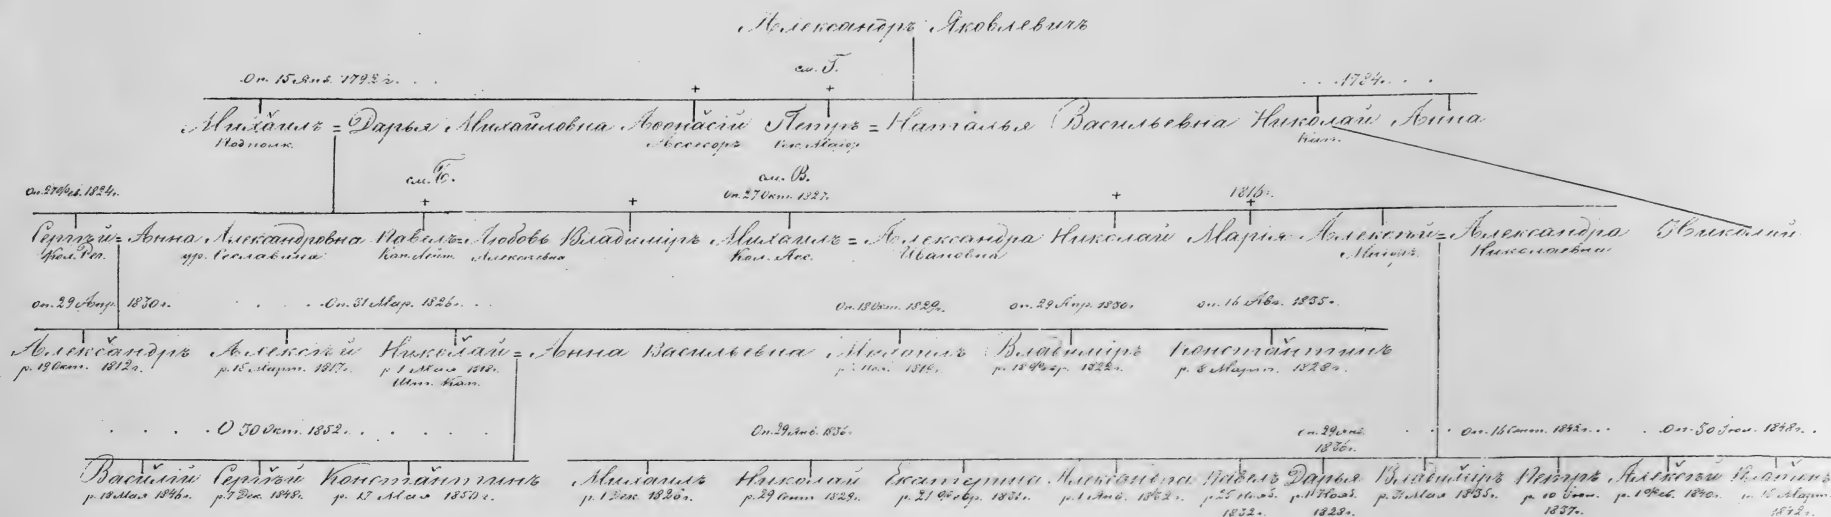 Александръ Яковлевичъ
Оп. 15 Янв. 1792 г. . . см. Г. . . . 1794. . . .
Михаилъ = Дарья Михайловна Аѳонасій Петръ = Наталья Васильевна Николай Анна
Подполк. Ассесоръ Сек. Маіор Кап.
Оп. 27 Фев. 1824 г. см. Б. см. В.
Оп. 27 Окт. 1827 г. 1816 г.
Сергѣй = Анна Александровна Павелъ = Любовь Владиміръ Михаилъ = Александра Николай Марія Алексѣй = Александра Николай
Кол. Рег. ур. Кап. Лейт. Алексѣевна Кол. Асс. Ивановна Маіоръ Николаевна
Оп. 29 Апр. 1830 г. . . . Оп. 31 Мар. 1826 г. . . Оп. 18 Окт. 1829 г. Оп. 29 Апр. 1830 г. Оп. 16 Авг. 1835 г.
Александръ Алексѣй Николай = Анна Васильевна Михаилъ Владиміръ Константинъ
р. 19 Окт. 1812 г. р. 15 Март. 1817 г. р. 1 Мая 1818 г. р. 1819 г. р. 18 Февр. 1822 г. р. 8 Март. 1828 г.
Шт. Кап.
. . . . О 30 Окт. 1852 г. . . . . Оп. 29 Янв. 1836 г. Оп. 29 Янв. . . . Оп. 16 Сент. 1842 г. . . . Оп. 30 Іюл. 1848 г. .
1836 г.
Василій Сергѣй Константинъ Михаилъ Николай Екатерина Александра Павелъ Дарья Владиміръ Петръ Алексѣй
р. 18 Мая 1846 г. р. 7 Дек. 1848 г. р. 17 Мая 1850 г. р. 1 Дек. 1826 г. р. 29 Сент. 1829 г. р. 21 Февр. 1831 г. р. 1 Янв. р. 25 Нояб. р. Нояб. р. 31 Мая 1835 г. р. 10 р. 1 Фев. 1840 г. р. 15 Март.
1832 г. 1828 г. 1837 г. 1842 г.